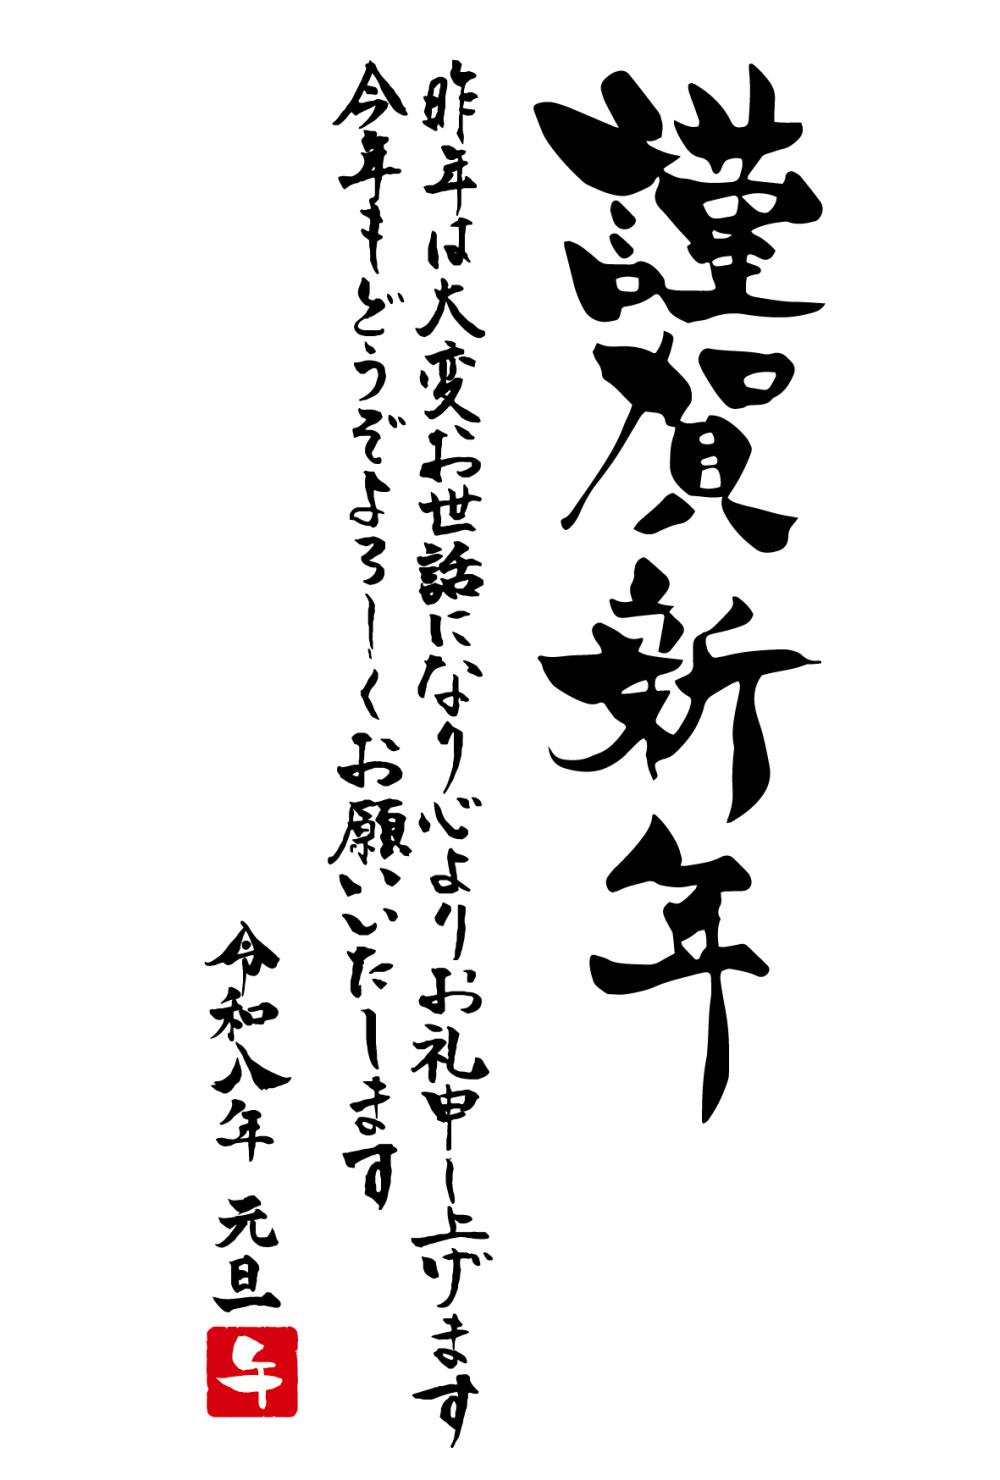 謹賀新年
昨年は大変お世話になり心よりお礼申し上げます
今年もどうぞよろしくお願いいたします
令和八年 元旦
午